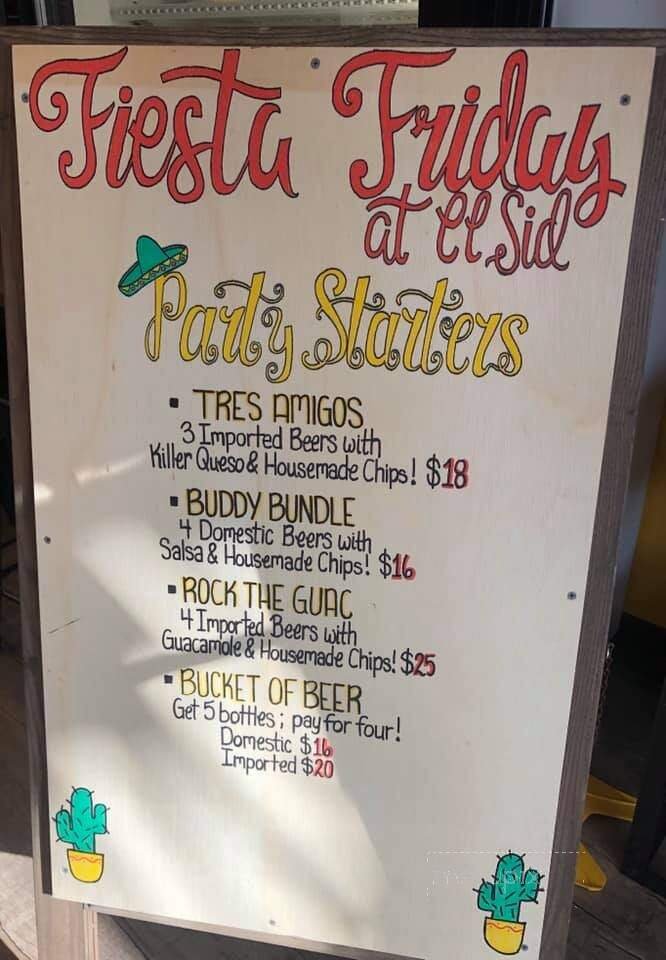 Fiesta Friday
at El Sid
Party Starters
▪ TRES AMIGOS
3 Imported Beers with
Killer Queso & Housemade Chips! $18
▪ BUDDY BUNDLE
4 Domestic Beers with
Salsa & Housemade Chips! $16
▪ ROCK THE GUAC
4 Imported Beers with
Guacamole & Housemade Chips! $25
▪ BUCKET OF BEER
Get 5 bottles; pay for four!
Domestic $16
Imported $20